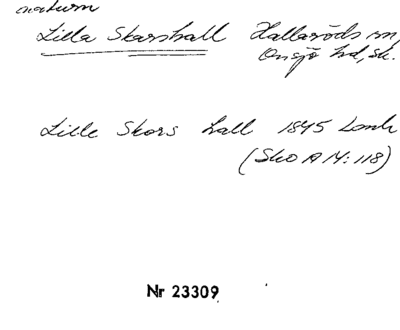 naturn
Lilla Skarshall Hallaröds sn,
Onsjö hd, Sk.
Lille Skors hall 1845 Lomk
(Sko A M: 118)
Nr 23309